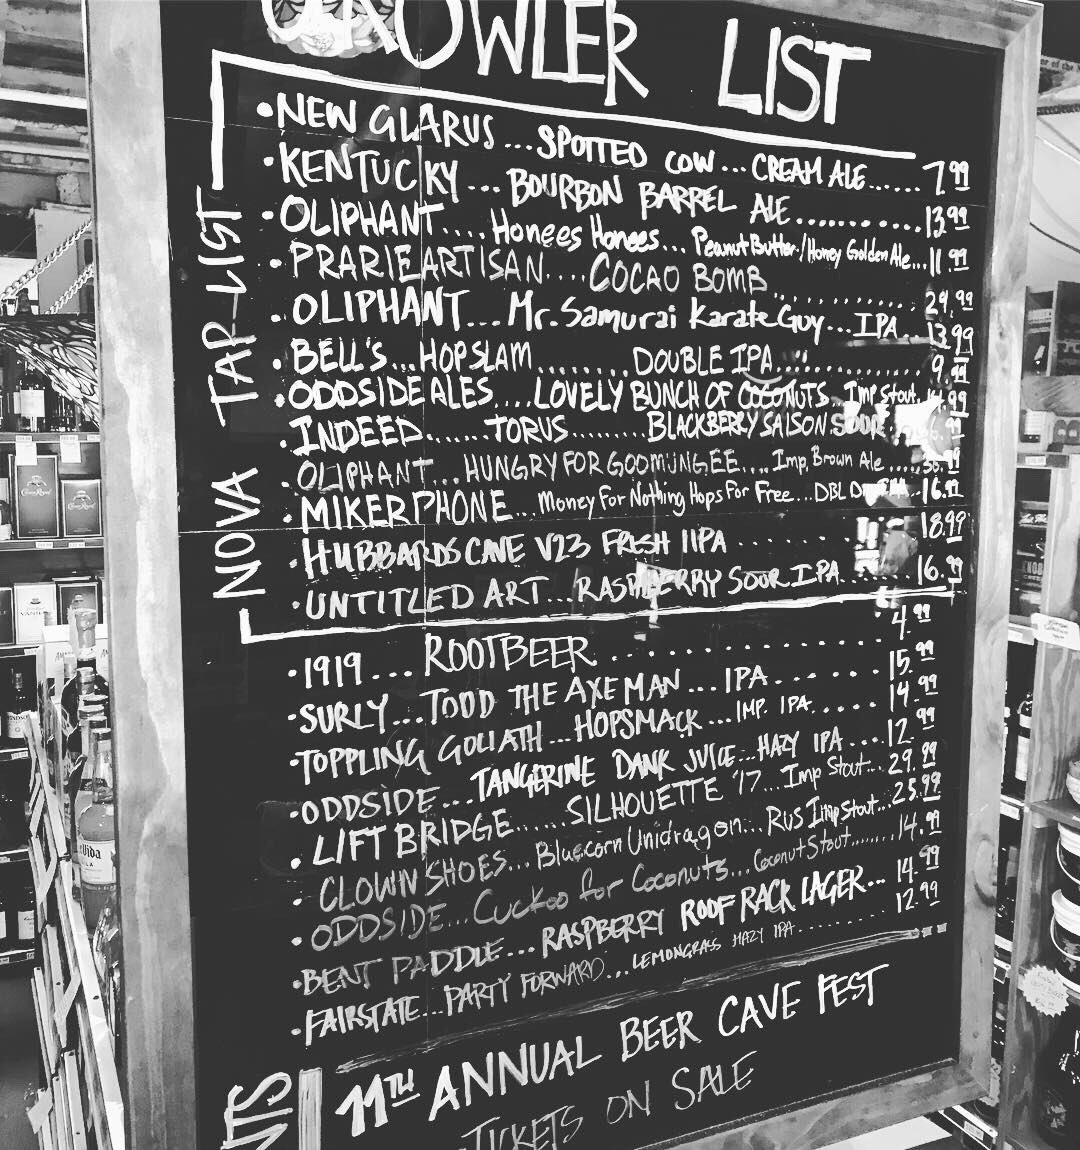 GROWLER LIST
NOVA TAP LIST
• NEW GLARUS ... SPOTTED COW ... CREAM ALE ...... 7.99
• KENTUCKY ... BOURBON BARREL ALE ........ 13.99
• OLIPHANT .... Honees Honees ... Peanut Butter/Honey Golden Ale ... 11.99
• PRARIE ARTISAN .... COCAO BOMB ........ 24.99
• OLIPHANT ... Mr. Samurai Karate Guy ... IPA ... 13.99
• BELL'S ... HOPSLAM ........ DOUBLE IPA ........ 9.99
• ODDSIDE ALES .... LOVELY BUNCH OF COCONUTS. Imp Stout
• INDEED ...... TORUS ........ BLACKBERRY SAISON SOUR
• OLIPHANT ... HUNGRY FOR GOOMUNGEE .... Imp. Brown Ale .....
• MIKERPHONE ... Money For Nothing Hops For Free ... DBL 16.99
• HUBBARDS CAVE V23 FRESH IIPA ........ 18.99
• UNTITLED ART ... RASPBERRY SOUR IPA ...... 16.99
• 1919 ... ROOTBEER ............ 4.99
• SURLY ... TODD THE AXE MAN ... IPA ...... 15.99
• TOPPLING GOLIATH ... HOPSMACK ... IMP. IPA ..... 14.99
• ODDSIDE ... TANGERINE DANK JUICE ... HAZY IPA .... 12.99
• LIFT BRIDGE ...... SILHOUETTE '17 ... Imp Stout ... 29.99
• CLOWN SHOES ... Bluecorn Unidragon ... Rus Imp Stout ... 25.99
• ODDSIDE ... Cuckoo for Coconuts ... Coconut Stout ....... 14.99
• BENT PADDLE ... RASPBERRY ROOF RACK LAGER ... 14.99
• FAIRSTATE ... PARTY FORWARD ... LEMONGRASS HAZY IPA ........ 12.99
11TH ANNUAL BEER CAVE FEST
TICKETS ON SALE